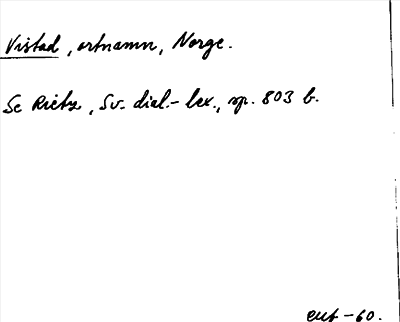 Vistad, ortnamn, Norge.
Se Rietz, Sv. dial.-lex., sp. 803 b.
-60.